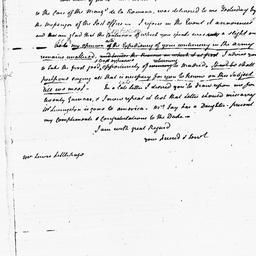 to the Care of the Marqs de la Romana, was delivered to me Yesterday by
the Messenger of the Post office — I rejoice in the Event it announced
and am glad that the Conclusion of what you speak was a slight one
my opinion of the Expediency of your continuing in the army
remains unaltered,
to take the first good opportunity of returning to Madrid,
postpone saying all that is necessary for you to know on this Subject
till we meet — In a late Letter I desired you to draw upon me for
twenty Guineas, & I now repeat it lest that Letter should miscarry
Mr Livingston is gone to america. Mrs Jay has a Daughter — present
my compliments & Congratulations to the Duke —
I am with great Regard
your Friend & Servt
Mr Lewis Littlepage